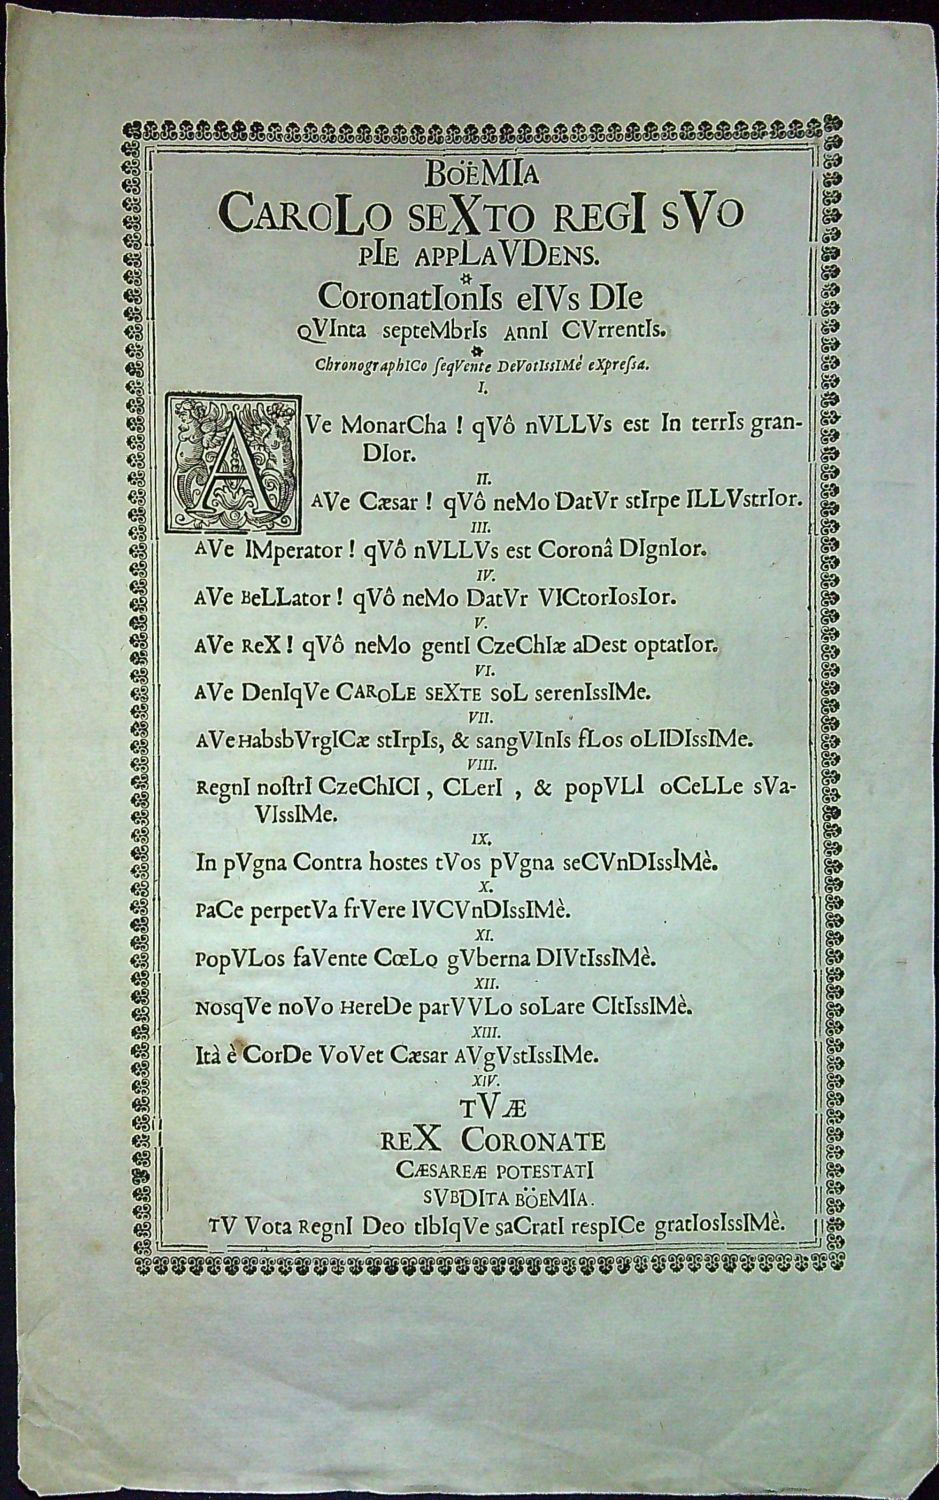 BOËMIA
CAROLO SEXTO REGI SVO
PIE APPLAVDENS.
CoronatIonIs eIVs DIe
QVInta septeMbrIs AnnI CVrrentIs.
ChronographICo seqVente DeVotIssIMè eXpressa.
I.
AVe MonarCha ! qVô nVLLVs est In terrIs gran-
DIor.
II.
AVe Cæsar ! qVô neMo DatVr stIrpe ILLVstrIor.
III.
AVe IMperator ! qVô nVLLVs est Coronâ DIgnIor.
IV.
AVe BeLLator ! qVô neMo DatVr VICtorIosIor.
V.
AVe ReX ! qVô neMo gentI CzeChIæ aDest optatIor.
VI.
AVe DenIqVe CAROLE SEXTE soL serenIssIMe.
VII.
AVe HabsbVrgICæ stIrpIs, & sangVInIs fLos oLIDIssIMe.
VIII.
RegnI nostrI CzeChICI , CLerI , & popVLI oCeLLe sVa-
VIssIMe.
IX.
In pVgna Contra hostes tVos pVgna seCVnDIssIMè.
X.
PaCe perpetVa frVere IVCVnDIssIMè.
XI.
PopVLos faVente CœLo gVberna DIVtIssIMè.
XII.
NosqVe noVo HereDe parVVLo soLare CItIssIMè.
XIII.
Ità è CorDe VoVet Cæsar AVgVstIssIMe.
XIV.
TVÆ
REX CORONATE
CÆSAREÆ POTESTATI
SVBDITA BÖEMIA.
TV Vota RegnI Deo tIbIqVe saCratI respICe gratIosIssIMè.